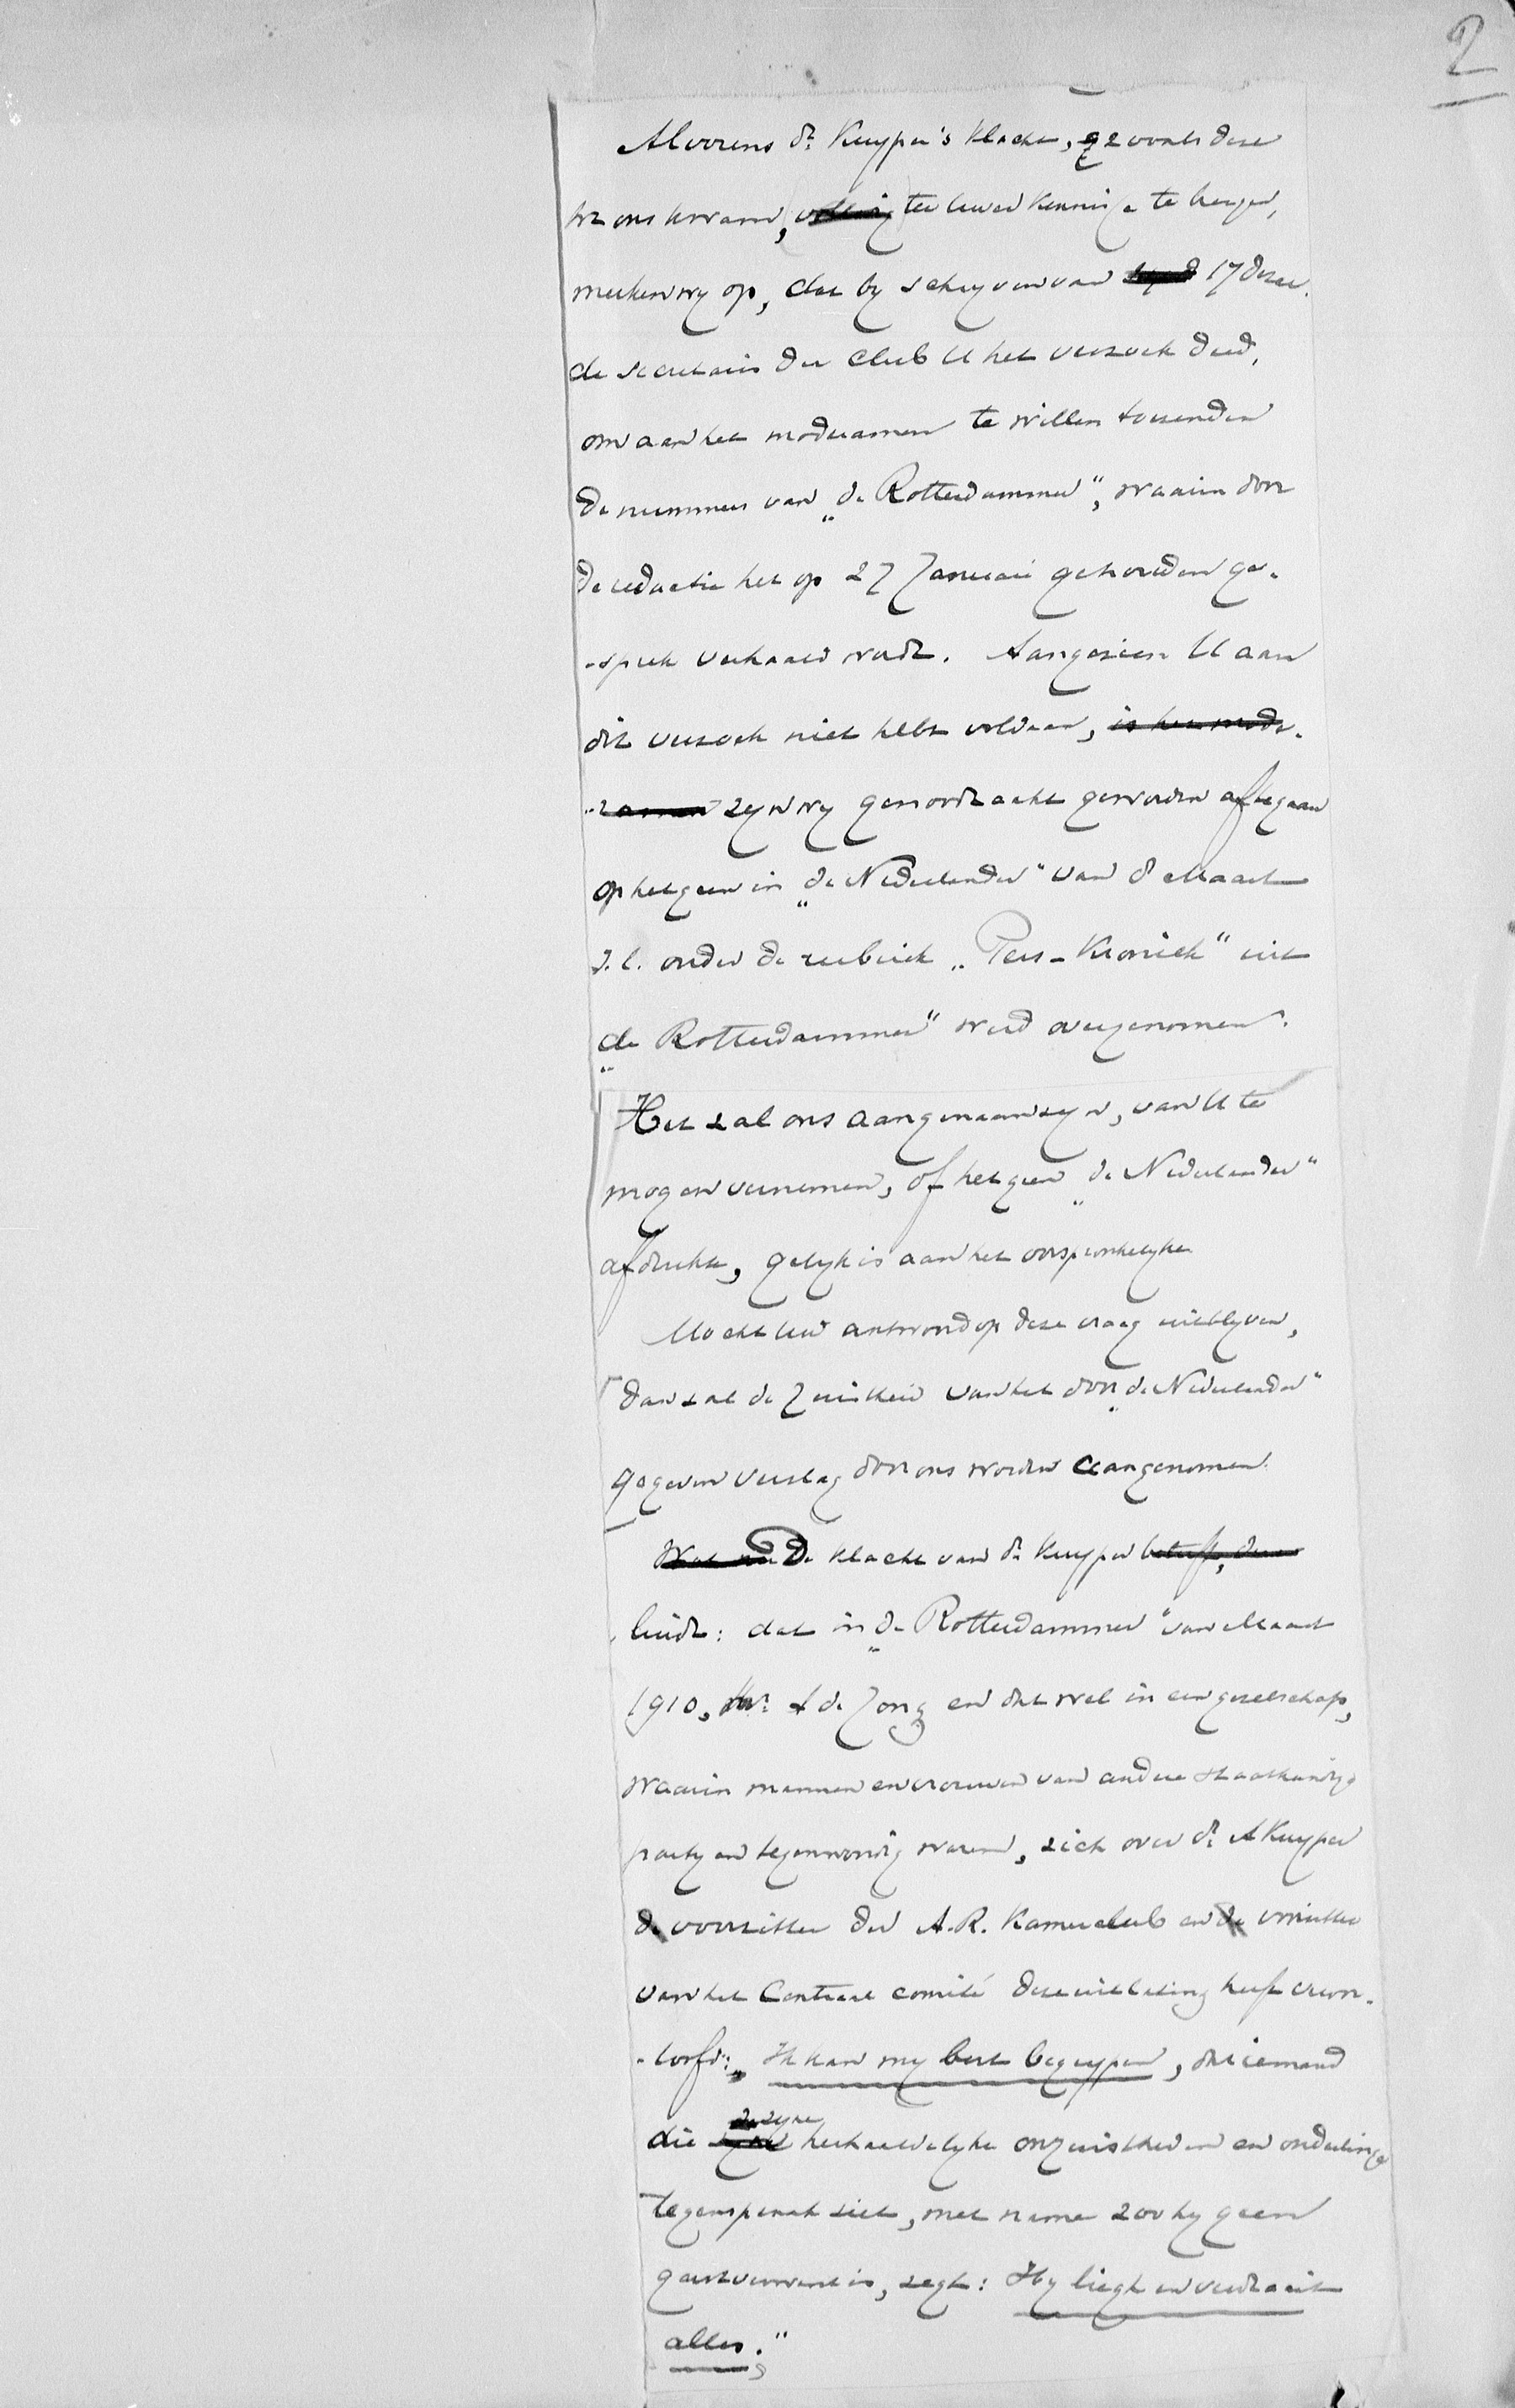 2
Alvorens dr. Kuyper's klacht, zooals deze
tot ons kwam, volledig ter uwer kennisse te brengen,
merken wy op, dat by schryven van 17 dezer
de secretaris der club U het verzoek deed,
om aan het moderamen te willen toezenden
de nummers van „de Rotterdammer", waarin door
de redactie het op 27 Januari gehouden ge-
-sprek verhaald wordt. Aangezien U aan
dit verzoek niet hebt voldaan, is het mode-
-ramen zyn wy genoodzaakt geworden af te gaan
op hetgeen in „de Nederlander" van 8 Maart
j.l. onder de rubriek „Pers-Kroniek" uit
„de Rotterdammer" werd overgenomen.
Het zal ons aangenaam zyn, van U te
mogen vernemen, of hetgeen „de Nederlander"
afdrukte, gelyk is aan het oorspronkelyke
Mocht uw antwoord op deze vraag uitblyven,
dan zal de juistheid van het door „de Nederlander"
gegeven verslag door ons worden aangenomen.
Wat nu De klacht van dr Kuyper betreft, deze
luidt: dat in „de Rotterdammer" van Maart
1910, Mr. A de Jong en dat wel in een gezelschap,
waarin mannen en vrouwen van andere staatkundige
partyen tegenwoordig waren, zich over dr. A Kuyper
de voorzitter der A.R. Kamerclub en de voorzitter
van het Centraal comité deze uitlating heeft veroor-
-loofd: „Ik kan my best begrypen, dat iemand
de zyne
die herhaaldelyke onjuistheden en onderlinge
tegenspraak ziet, met name zoo hy geen
geestverwant is, zegt: Hy liegt en verdraait
alles."